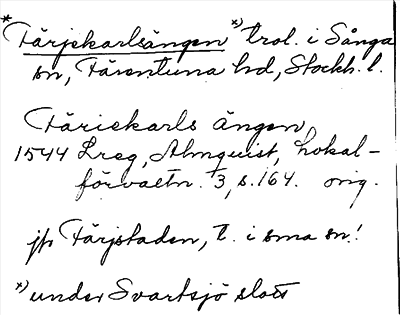 * Färjekarlsängen *) trol. i Sånga
sn, Färentuna hd, Stockh. l.
Färiekarls ängen,
1544 Lreg, Almquist, Lokal-
förvaltn. 3, s. 164. orig.
jfr Färjstaden, t. i sma sn!
*) under Svartsjö slott